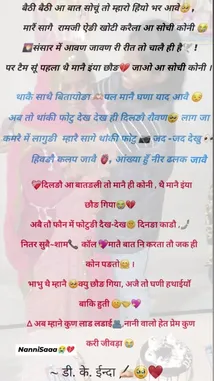 बैठी बैठी आ बात सोचूं तो म्हारो हियो भर आवे🥹 ,
मारै सागै रामजी ऐडी खोटी करैला आ सोची कोनी 😭
संसार में आवण जावण री रीत तो चाले ही है 🕊️ !
पर टैम सूं पहला थे माने इंया छोड💔 जाओ आ सोची कोनी ।
थाकै साथै बितायोडा पल माने घणा याद आवे 😔
अब तो थांकी फोटू देख देख ही दिलडो रौवण🥹 लाग जा
कमरे में लागुडी म्हारै सागै थांकी फोटू 📸 जद -जद देखु 👀
हिवडौ कलप जावे 🫀, आंख्या हूँ नीर ढलक जावे
❤️‍🩹दिलडौ आ बातडली तो माने ही कोनी , थे माने इंया
छोड गिया😭💔
अबै तो फोन में फोटुडी देख-देख🥹 दिनडा काडो ,
नितर सुबै-शाम📞 कॉल 💔माते बात नि करता तो जक ही
कोन पडतो🥹 ।
भाभु थे म्हाने 🥹क्यु छोड गिया, अजे तो घणी हथाईयाँ
बाकि हुती
अब म्हाने कुण लाड लडाई🫂,नानी वालो हेत प्रेम कुण
करी जीवड़ा 😭
NanniSaaa😭💔
~ डी. के. ईन्दा ✍🏻🥹❤️